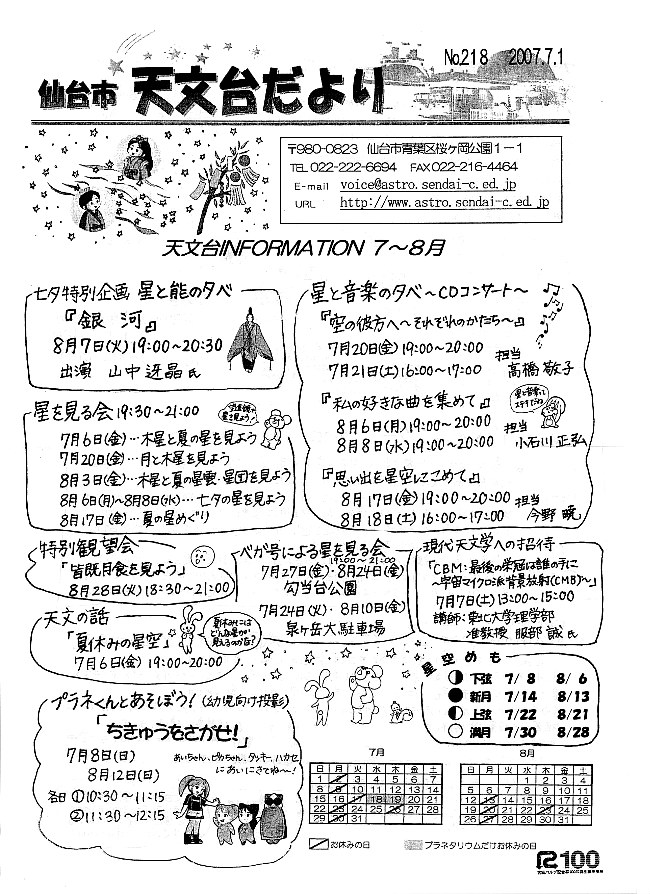 No.218 2007.7.1
仙台市 天文台だより
〒980-0823 仙台市青葉区桜ヶ岡公園1-1
TEL 022-222-6694 FAX 022-216-4464
E-mail voice@astro.sendai-c.ed.jp
URL http://www.astro.sendai-c.ed.jp
天文台INFORMATION 7～8月
七夕特別企画 星と能の夕べ
『銀河』
8月7日(火) 19:00～20:30
出演 山中迓晶氏
星を見る会 19:30～21:00
7月6日(金)…木星と夏の星を見よう
7月20日(金)…月と木星を見よう
8月3日(金)…木星と夏の星雲・星団を見よう
8月6日(月)～8月8日(水)…七夕の星を見よう
8月17日(金)…夏の星めぐり
星と音楽の夕べ～CDコンサート～
『空の彼方へ～それぞれのかたち～』
7月20日(金) 19:00～20:00
7月21日(土) 16:00～17:00
担当
高橋敬子
『私の好きな曲を集めて』
星と音楽って
ステキだね
8月6日(月) 19:00～20:00
8月8日(水) 19:00～20:00
担当
小石川正弘
『思い出を星空にこめて』
8月17日(金) 19:00～20:00
8月18日(土) 16:00～17:00
担当
今野暁
特別観望会
「皆既月食を見よう」
8月28日(火) 18:30～21:00
べが号による星を見る会
19:00～21:00
7月27日(金)・8月24日(金)
勾当台公園
7月24日(火)・8月10日(金)
泉ヶ岳大駐車場
現代天文学への招待
「CBM:最後の栄冠は誰の手に
～宇宙マイクロ派背景放射(CMB)～」
7月7日(土) 13:00～15:00
講師:東北大学理学部
准教授 服部誠氏
天文の話
「夏休みの星空」
7月6日(金) 19:00～20:00
夏休みには
どんな星が
見えるのかな?
星空めも
下弦 7/8 8/6
新月 7/14 8/13
上弦 7/22 8/21
満月 7/30 8/28
プラネくんとあそぼう!(幼児向け投影)
「ちきゅうをさがせ!」
7月8日(日)
8月12日(日)
各日 ①10:30～11:15
②11:30～12:15
あいちゃん、ピカちゃん、タッキー、ハカセ
にあいにきてね～!
7月
日 月 火 水 木 金 土
1 2 3 4 5 6 7
8 9 10 11 12 13 14
15 16 17 18 19 20 21
22 23 24 25 26 27 28
29 30 31
8月
日 月 火 水 木 金 土
1 2 3 4
5 6 7 8 9 10 11
12 13 14 15 16 17 18
19 20 21 22 23 24 25
26 27 28 29 30 31
お休みの日
プラネタリウムだけお休みの日
R100